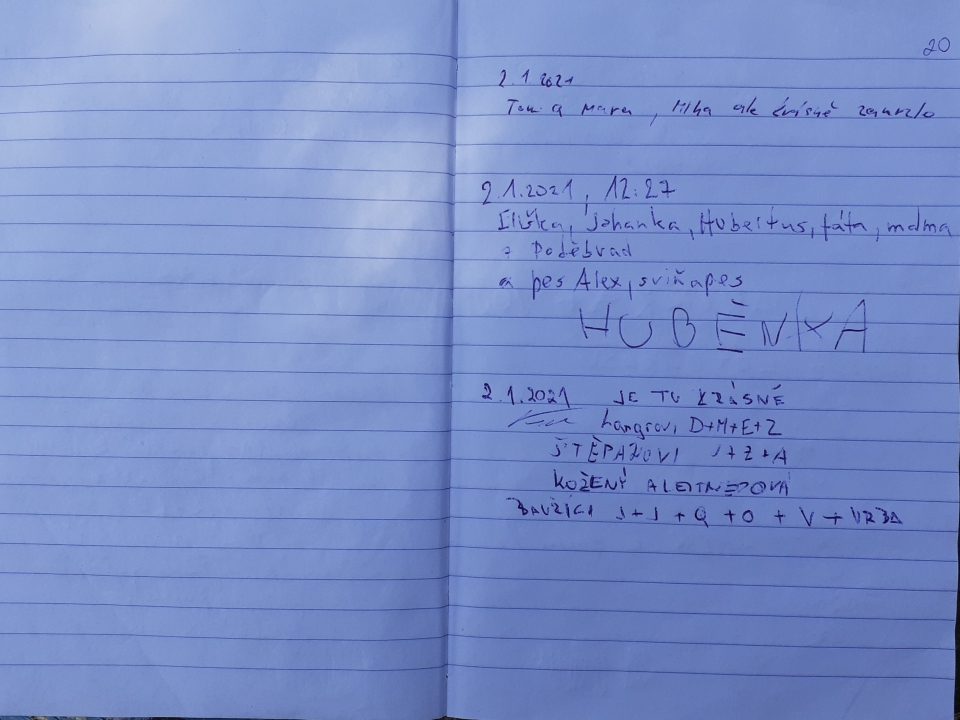 20
2.1.2021
Tom a Mara, Mlha ale krásně zamrzlo
2.1.2021, 12:27
Eliška, Johanka, Hubertus, táta, máma
z Poděbrad
a pes Alex, sviňapes
HUBĚNKA
2.1.2021 JE TU KRÁSNĚ
Langrovi, D+M+E+Z
ŠTĚPÁNOVI J+Z+A
KOŽENÝ
J+J+Q+O+V+VRBA